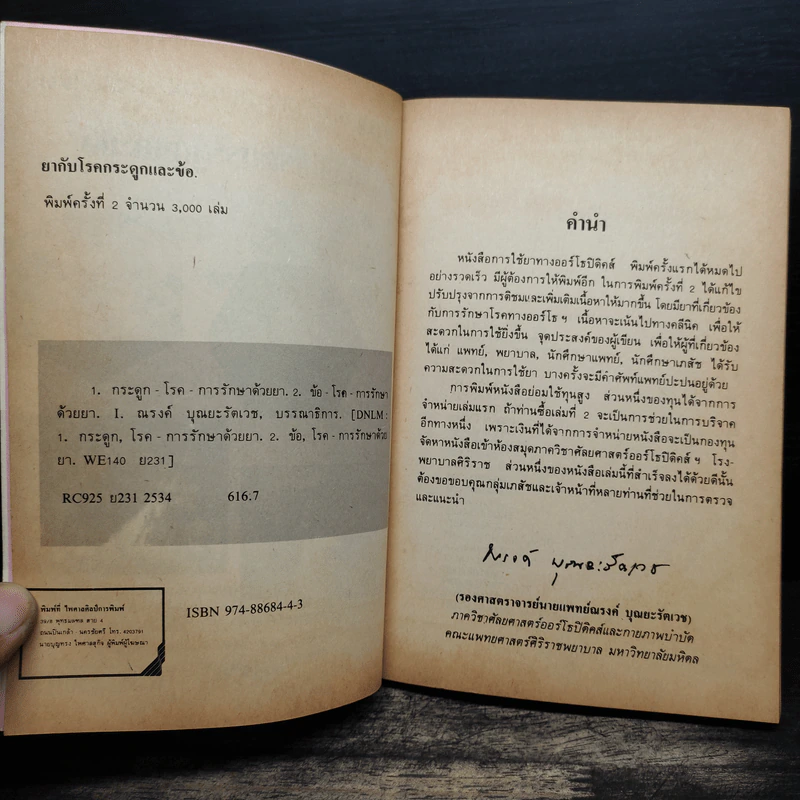 ยากับโรคกระดูกและข้อ.
พิมพ์ครั้งที่ 2 จำนวน 3,000 เล่ม
1. กระดูก - โรค - การรักษาด้วยยา. 2. ข้อ - โรค - การรักษา
ด้วยยา. I. ณรงค์ บุณยะรัตเวช, บรรณาธิการ. [DNLM :
1. กระดูก, โรค - การรักษาด้วยยา. 2. ข้อ, โรค - การรักษาด้วย
ยา. WE140 ย231]
RC925 ย231 2534 616.7
พิมพ์ที่ ไพศาลศิลป์การพิมพ์
พุทธมณฑล สาย 4
ถนนปิ่นเกล้า - นครชัยศรี โทร. 4203791
นายบุญทรง ไพศาลสุกิจ ผู้พิมพ์ผู้โฆษณา
ISBN 974-88684-4-3
คำนำ
หนังสือการใช้ยาทางออร์โธปิดิคส์ พิมพ์ครั้งแรกได้หมดไป
อย่างรวดเร็ว มีผู้ต้องการให้พิมพ์อีก ในการพิมพ์ครั้งที่ 2 ได้แก้ไข
ปรับปรุงจากการติชมและเพิ่มเติมเนื้อหาให้มากขึ้น โดยมียาที่เกี่ยวข้อง
กับการรักษาโรคทางออร์โธ ฯ เนื้อหาจะเน้นไปทางคลีนิค เพื่อให้
สะดวกในการใช้ยิ่งขึ้น จุดประสงค์ของผู้เขียน เพื่อให้ผู้ที่เกี่ยวข้อง
ได้แก่ แพทย์, พยาบาล, นักศึกษาแพทย์, นักศึกษาเภสัช ได้รับ
ความสะดวกในการใช้ยา บางครั้งจะมีคำศัพท์แพทย์ปะปนอยู่ด้วย
การพิมพ์หนังสือย่อมใช้ทุนสูง ส่วนหนึ่งของทุนได้จากการ
จำหน่ายเล่มแรก ถ้าท่านซื้อเล่มที่ 2 จะเป็นการช่วยในการบริจาค
อีกทางหนึ่ง เพราะเงินที่ได้จากการจำหน่ายหนังสือจะเป็นกองทุน
จัดหาหนังสือเข้าห้องสมุดภาควิชาศัลยศาสตร์ออร์โธปิดิคส์ ฯ โรง-
พยาบาลศิริราช ส่วนหนึ่งของหนังสือเล่มนี้ที่สำเร็จลงได้ด้วยดีนั้น
ต้องขอขอบคุณกลุ่มเภสัชและเจ้าหน้าที่หลายท่านที่ช่วยในการตรวจ
และแนะนำ
ณรงค์ บุณยะรัตเวช
(รองศาสตราจารย์นายแพทย์ณรงค์ บุณยะรัตเวช)
ภาควิชาศัลยศาสตร์ออร์โธปิดิคส์และกายภาพบำบัด
คณะแพทยศาสตร์ศิริราชพยาบาล มหาวิทยาลัยมหิดล